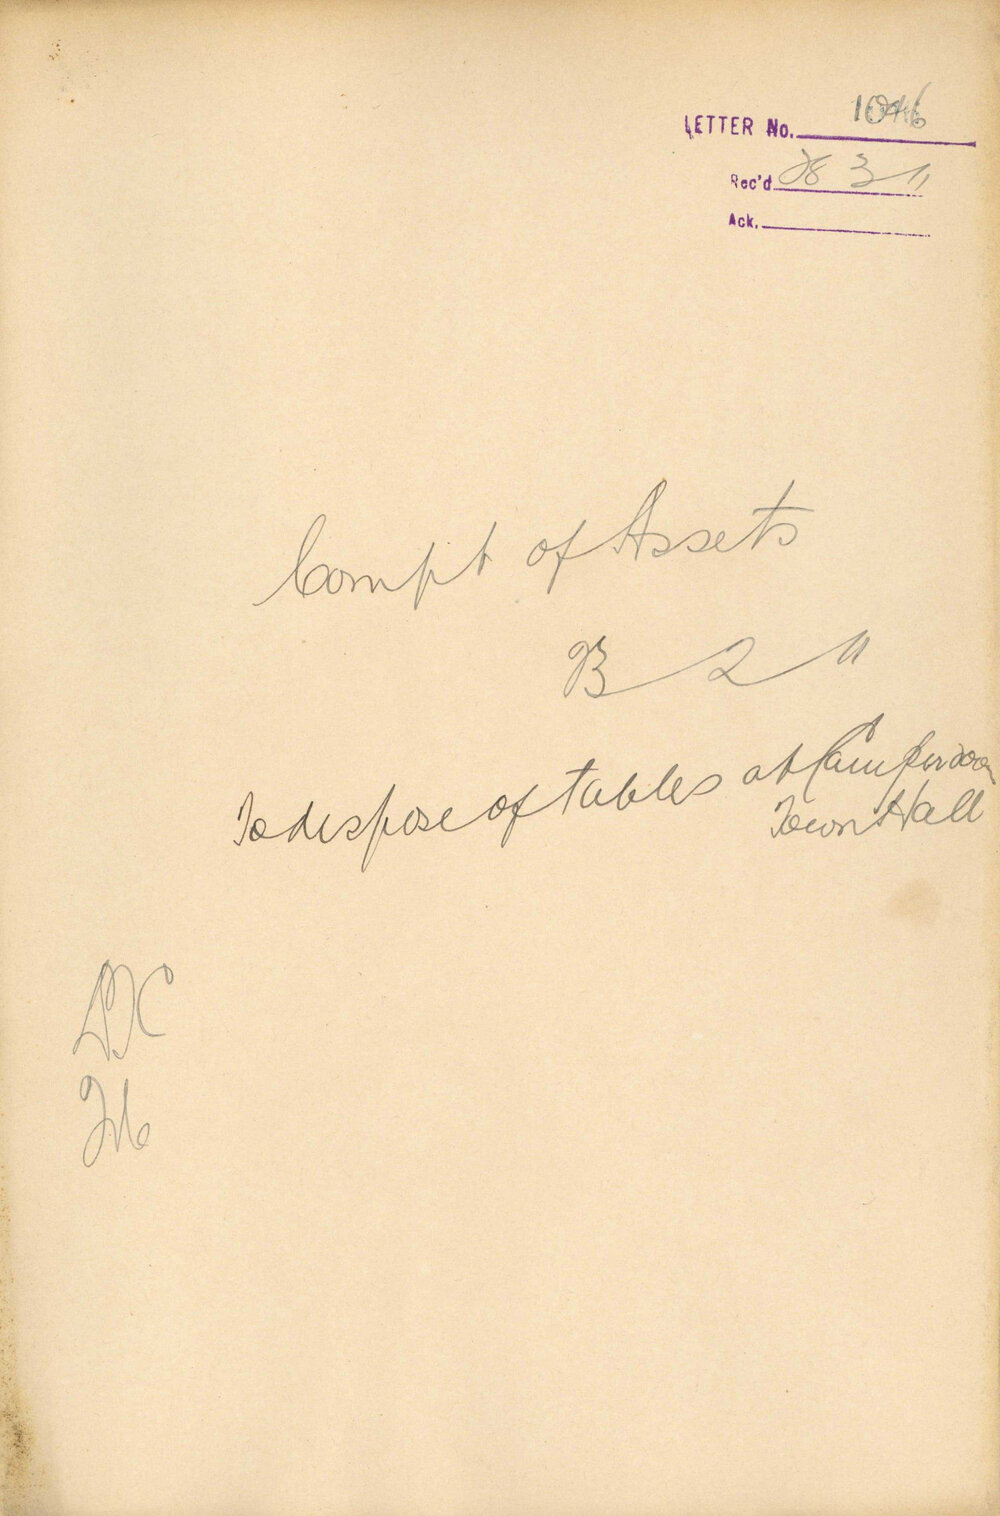 LETTER No. 1046
Rec'd 28 3 11
Ack.
Compt of Assets
2 11
To dispose of tables at Camperdown
Town Hall